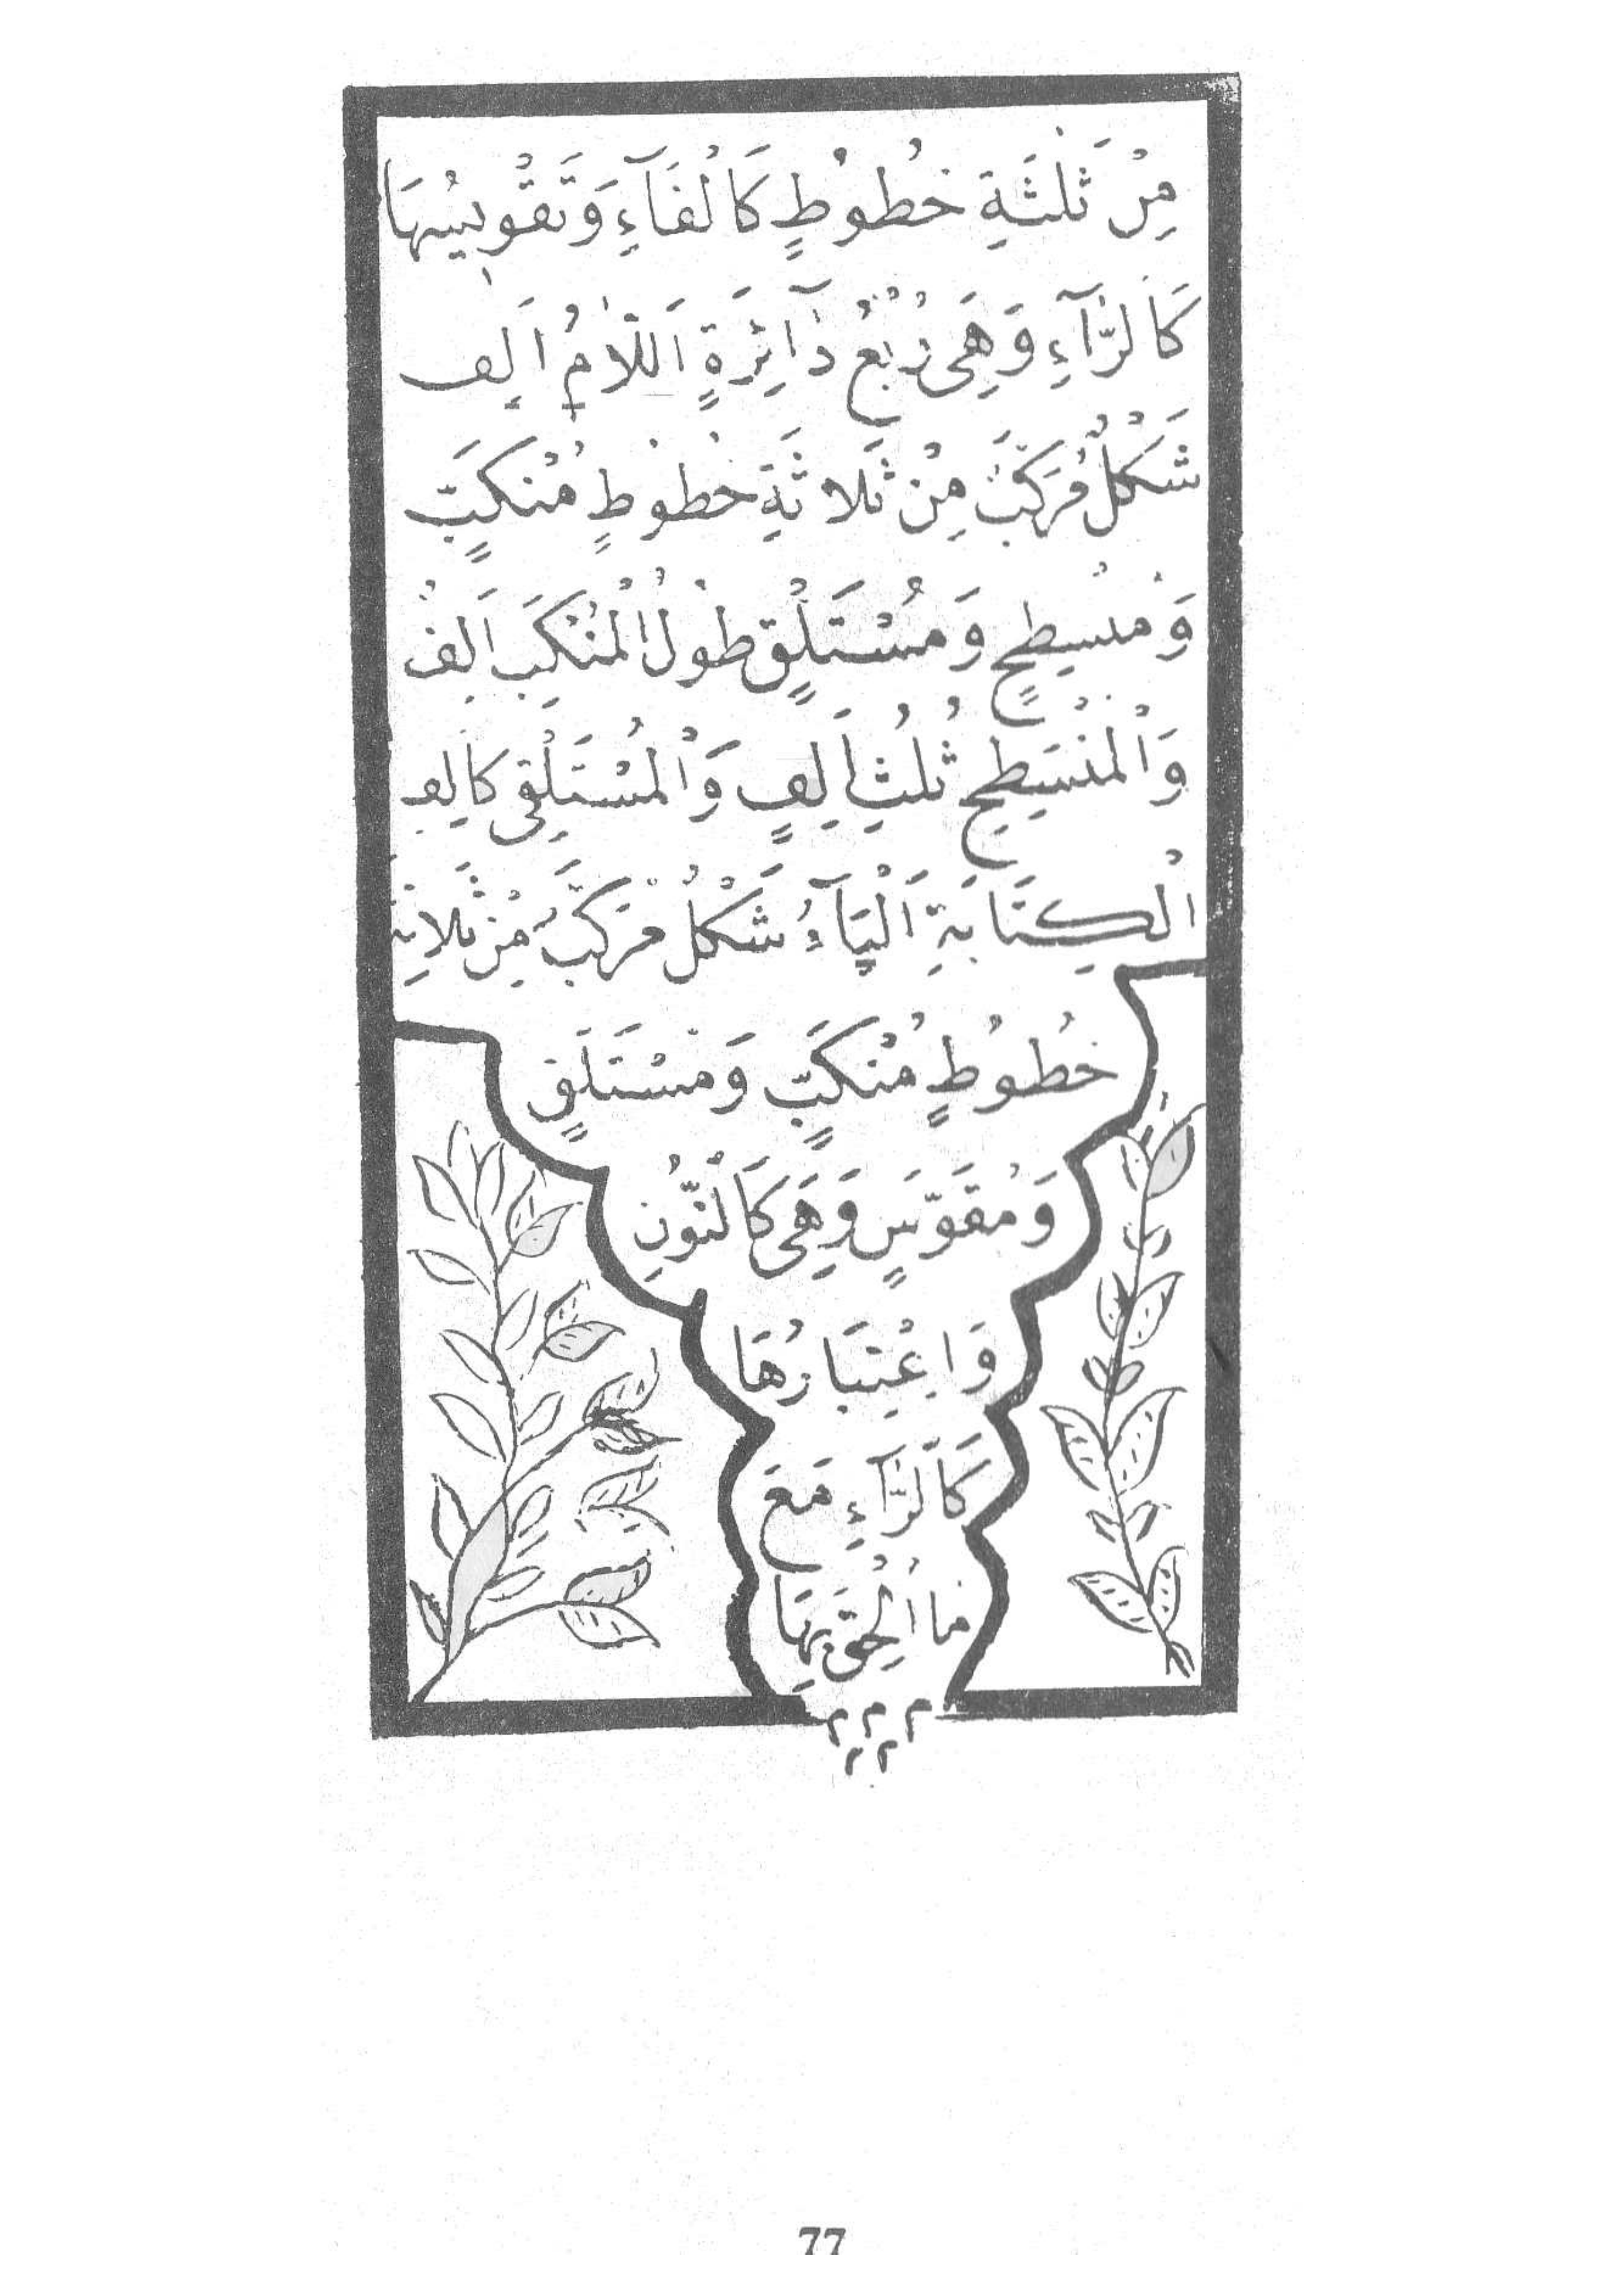 مِنْ ثَلٰثَةِ خُطُوْطٍ كَالْفَآءِ وَتَقْوِيْسُهَا
كَالرَّآءِ وَهِىَ رُبْعُ دَآئِرَةٍ اَللَّامُ اَلِف
شَكْلٌ مُرَكَّبٌ مِنْ ثَلَاثَةِ خُطُوطٍ مُنْكَبٍّ
وَمُنْسَطِحٍ وَمُسْتَلْقٍ طُولُ الْمُنْكَبِّ اَلِفٌ
وَالْمُنْسَطِحِ ثُلُثُ اَلِفٍ وَالْمُسْتَلْقِى كَالِفِ
الْكِتَابَةِ اَلْيَآءُ شَكْلٌ مُرَكَّبٌ مِنْ ثَلَاثَةِ
خُطُوُطٍ مُنْكَبٍّ وَمُسْتَلَقٍ
وَمُقَوَّسٍ وَهِىَ كَالنُّوْنِ
وَاِعْتِبَارُهَا
كَالرَّآءِ مَعَ
مَا اُلْحِقَ بِهَا
77